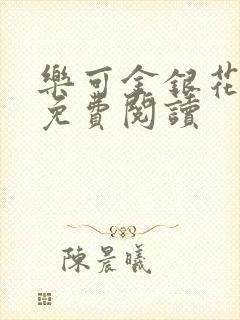 樂可金銀花
免費閱讀
陳晨曦